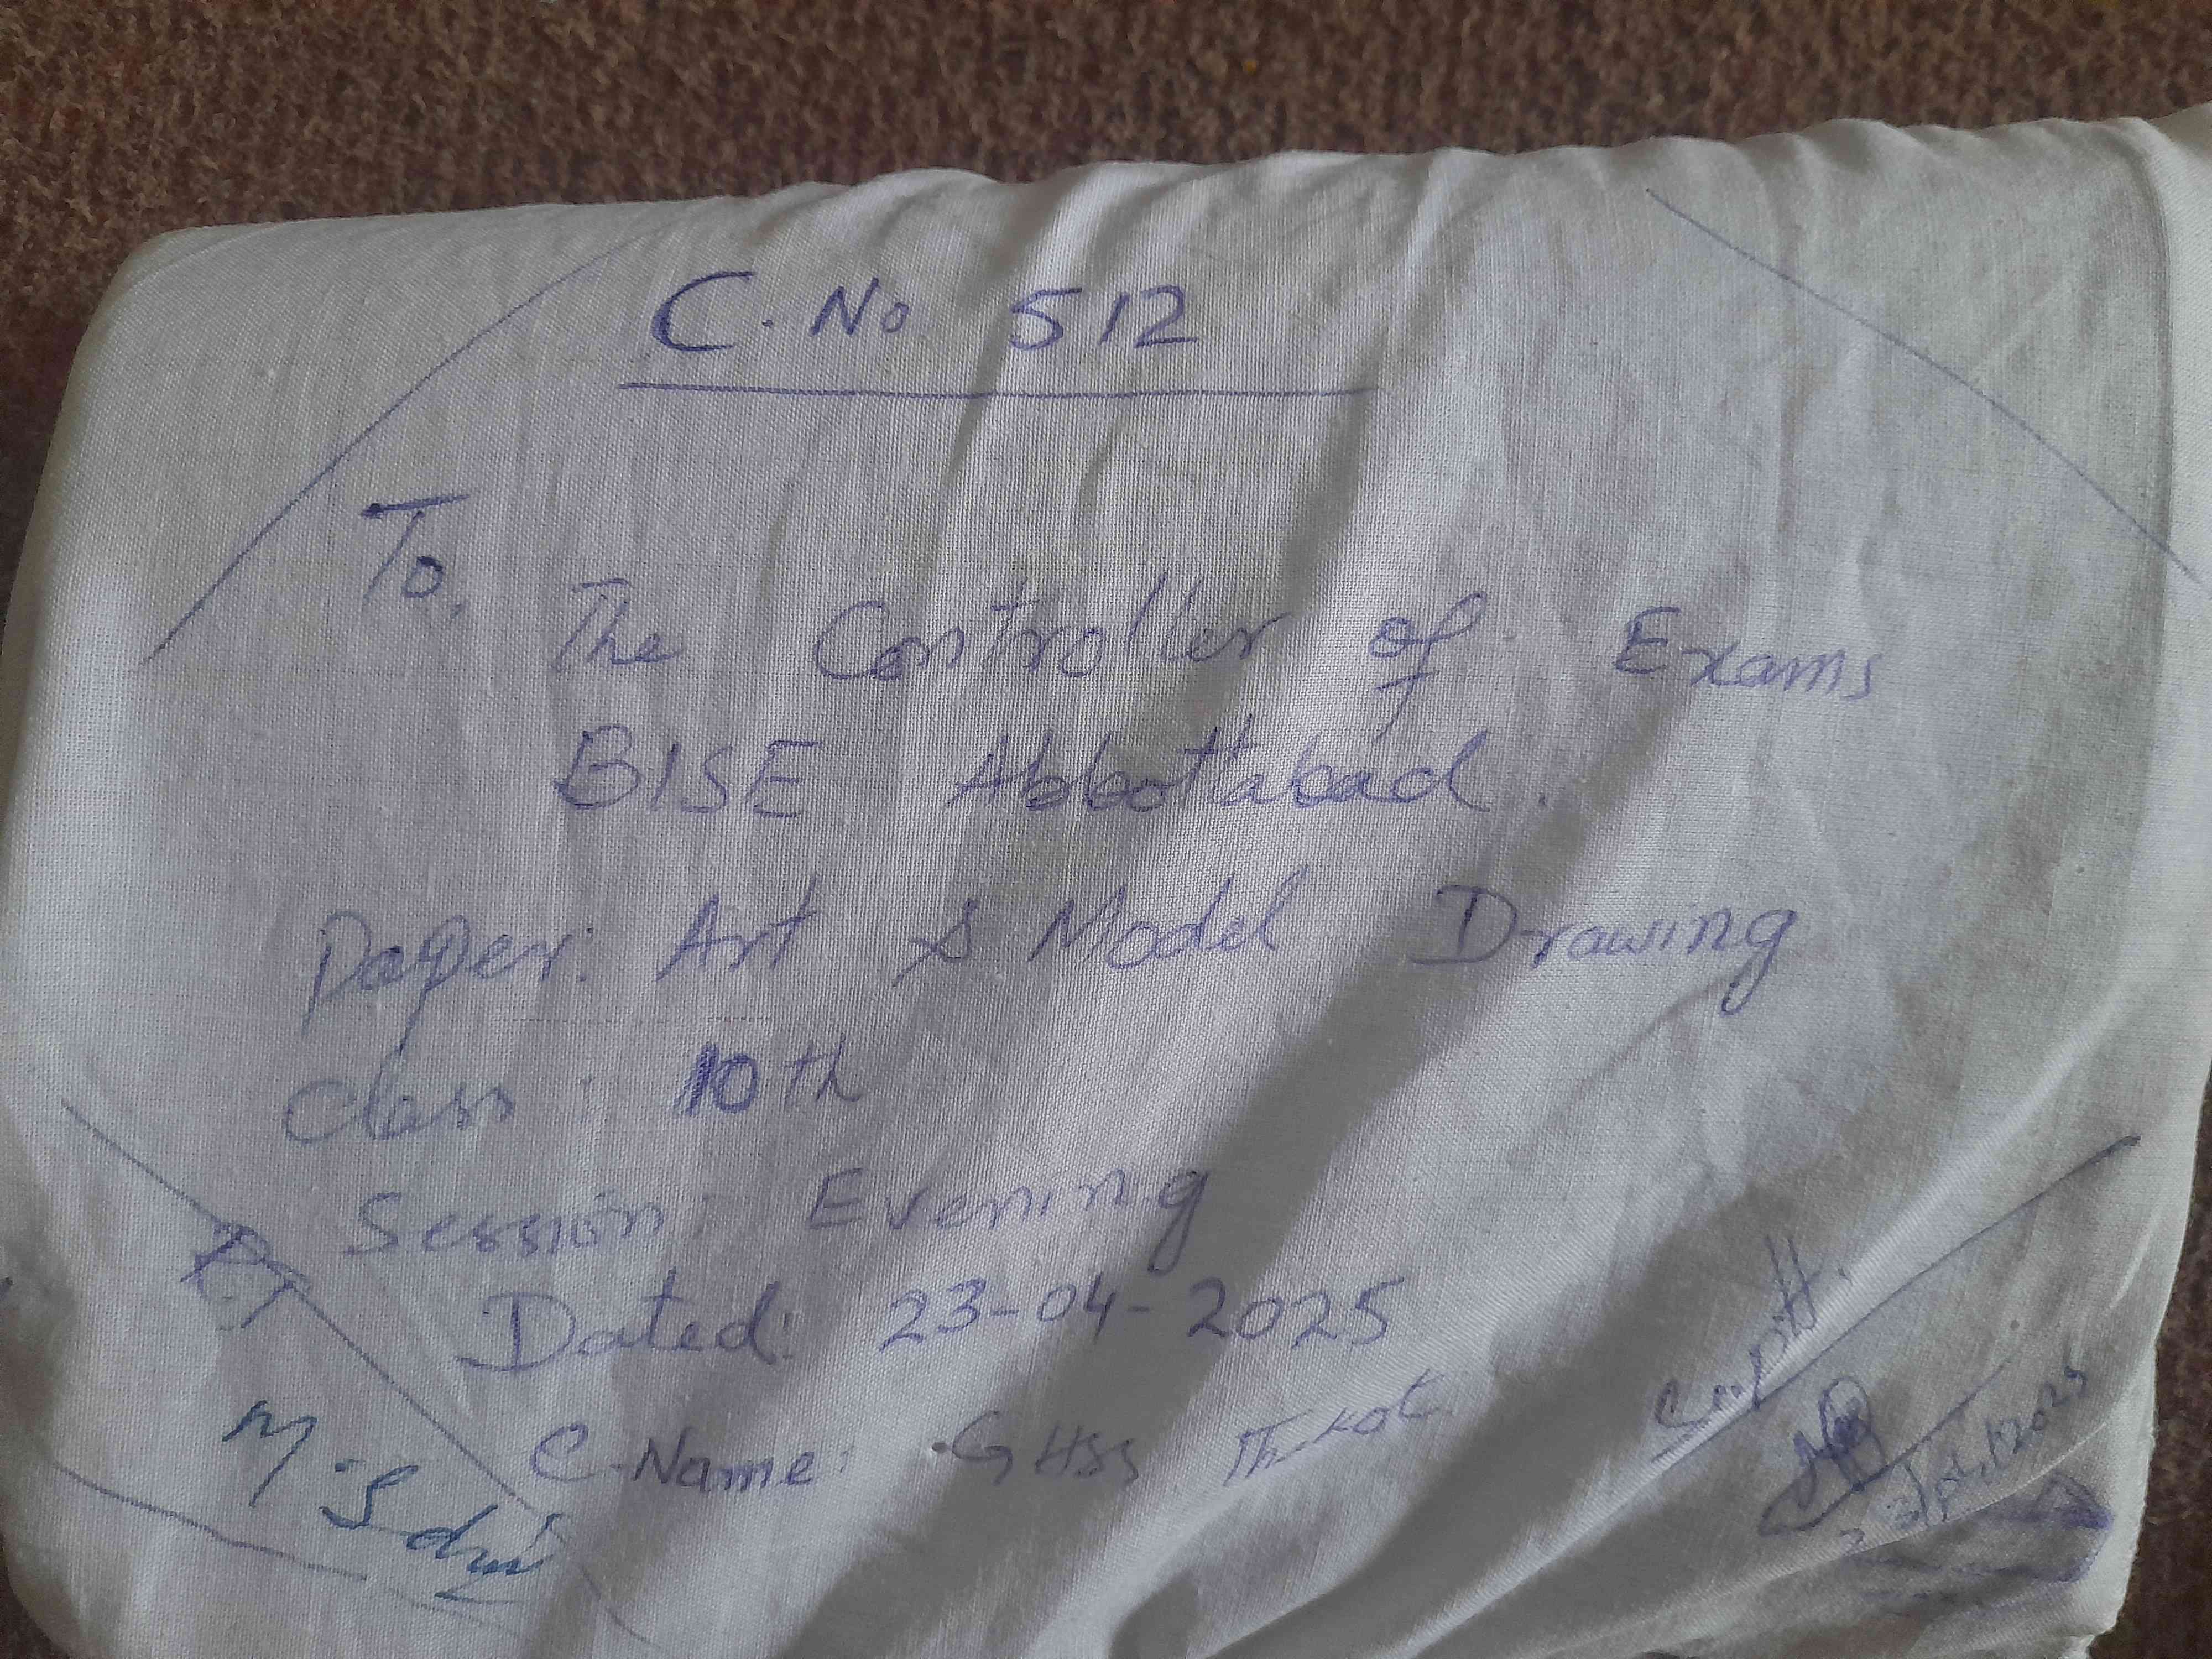 C. No 512
To,
The Controller of Exams
BISE Abbottabad.
Paper: Art & Model Drawing
Class: 10th
Session: Evening
Dated: 23-04-2025
C-Name: GHSS